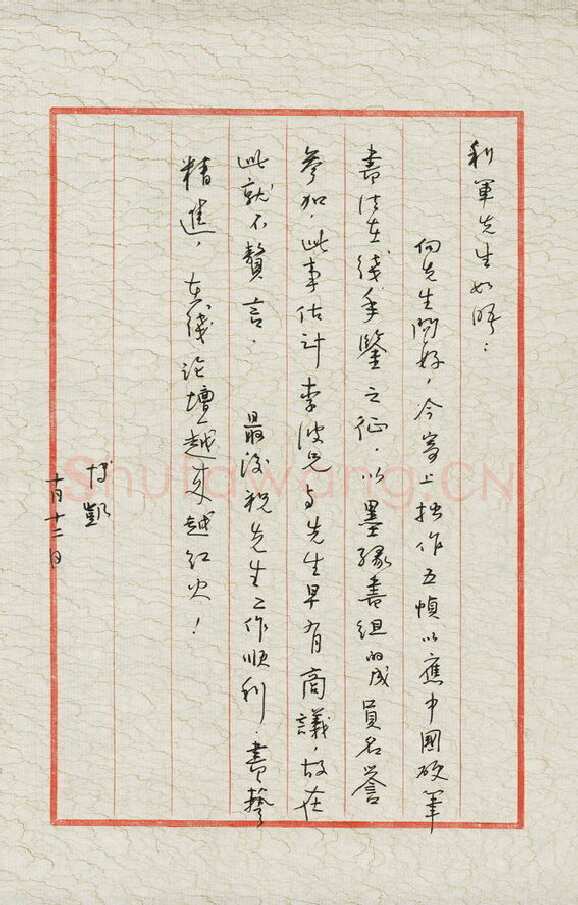 利軍先生如晤：
向先生問好，今寄上拙作五幀以應中國硬筆
書法在线年鑒之征，以墨緣書組的成員名誉
參加，此事估计李波兄与先生早有商議，故在
此就不贅言。最後祝先生工作順利，書藝
精進，在线论壇越来越红火！
博凱
十月十二日
Shufawang.CN